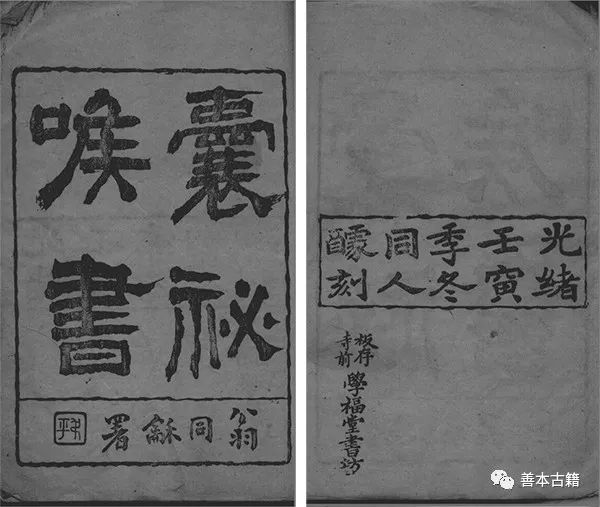 囊祕
喉書
翁同龢署
光緒
壬寅
季冬
同人
醵刻
板存
寺前
學福堂書坊
善本古籍